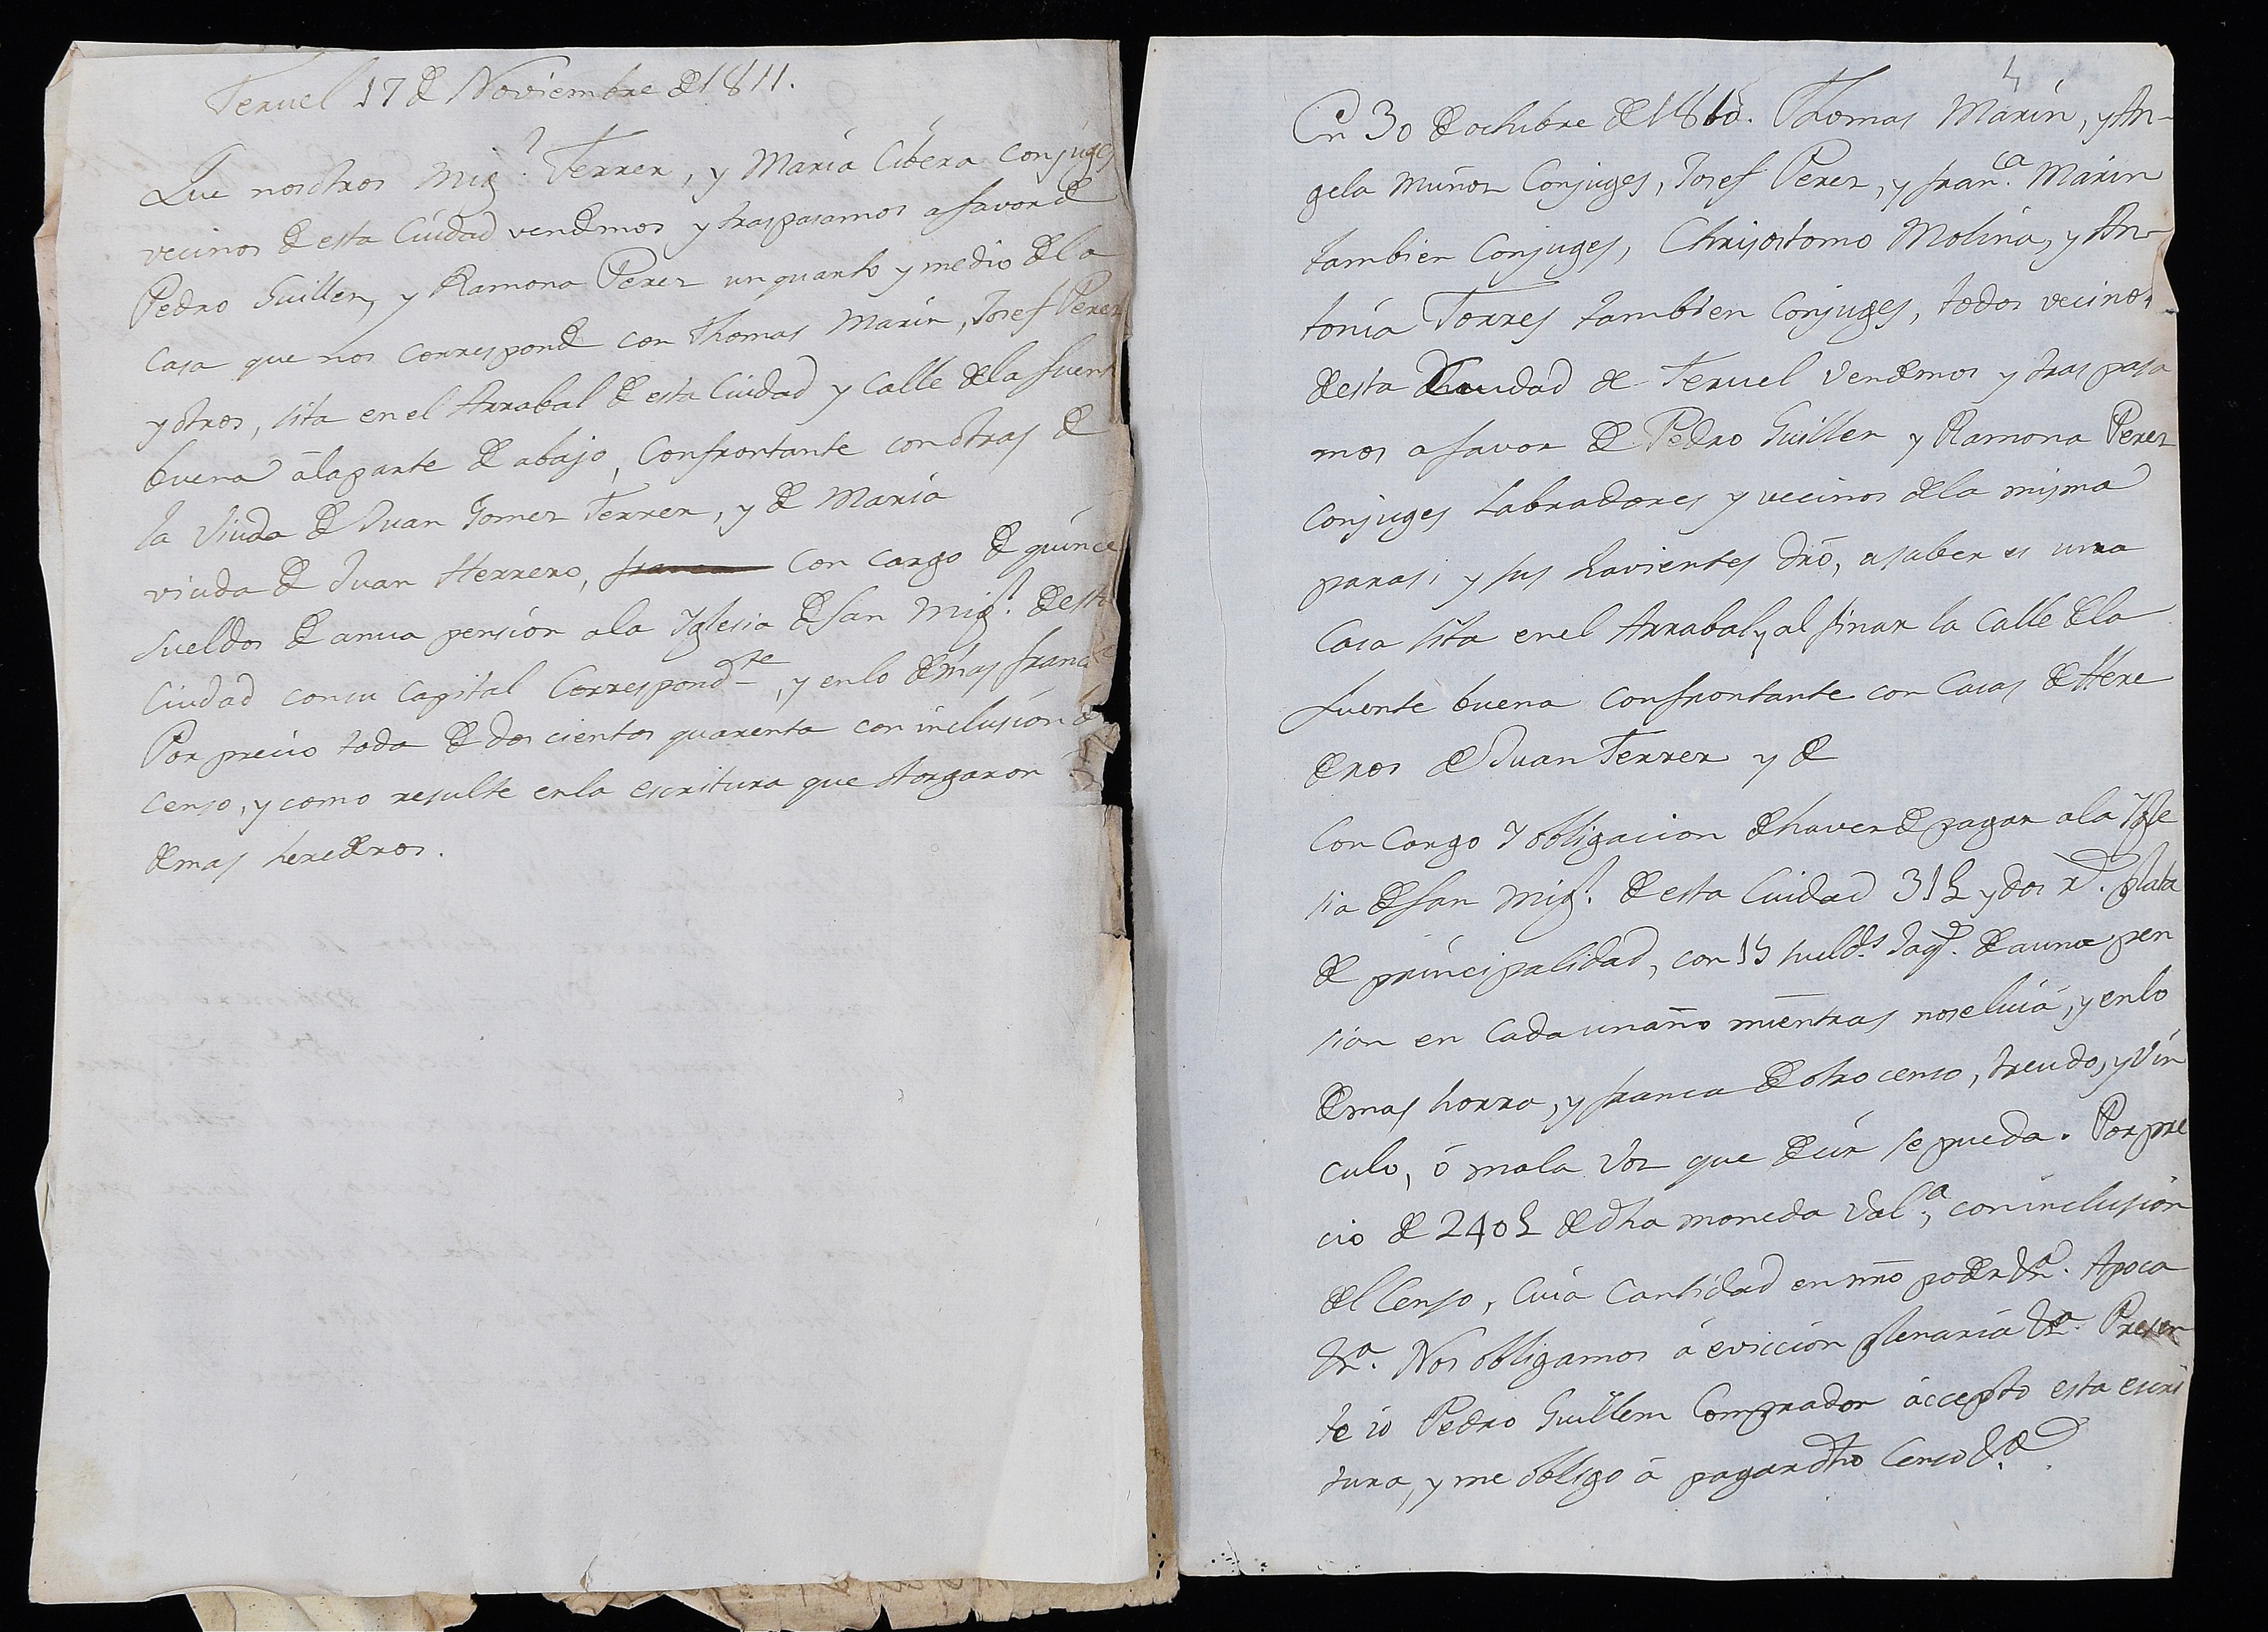 Teruel 17 de Noviembre de 1811.
Que nosotros Mig.l Terrer, y Maria Cibera conjuges
vecinos de esta Ciudad vendemos y traspasamos a favor de
Pedro Guillen, y Ramona Perez un quarto y medio de la
Casa que nos corresponde con Thomas Marin, Josef Perez
y otros, sita en el Arrabal de esta Ciudad y Calle de la fuente
buena á la parte de abajo, Confrontante con otras de
la Viuda de Juan Gomez Terrer, y de Maria
viuda de Juan Herrero, franca con cargo de quince
sueldos de anua pension a la Yglesia de San Mig.l de esta
Ciudad con su Capital Correspond.te, y en lo demas franca
Por precio toda de dos cientos quarenta con inclusion de
Censo, y como resulte en la escritura que otorgaron
demas herederos.
4
En 30 de octubre de 1810. Thomas Marin, y An-
gela Muñoz Conjuges, Josef Perez, y fran.ca Marin
tambien Conjuges, Chrisostomo Molina, y An-
tonia Torres tambien Conjuges, todos vecinos
de esta Ciudad de Teruel Vendemos y traspasa
mos a favor de Pedro Guillen y Ramona Perez
Conjuges Labradores y vecinos de la misma
para si, y sus havientes dró, a saber es una
Casa sita en el Arrabal, y al finar la Calle de la
fuente buena confrontante con Casas de Here
deros de Juan Terrer y de
Con Cargo y obligacion de haver de pagar a la Ygle
sia de San Mig.l de esta Ciudad 31 L y dos r.s plata
de principalidad, con 15 sueld.s Jaq.s de anua pen
sion en Cada un año mientras no se luia, y en lo
demas horra, y franca de otro censo, treudo, y Vin
culo, ó mala Voz que decir se pueda. Por pre
cio de 240 L de dha moneda Val.a, con inclusion
del Censo, Cuia Cantidad en nro poder &.a. Apoca
&.a. Nos obligamos á eviccion plenaria &.a. Presen
te io Pedro Guillem Comprador áccepto esta escri
tura, y me obligo á pagar dho Censo &.a